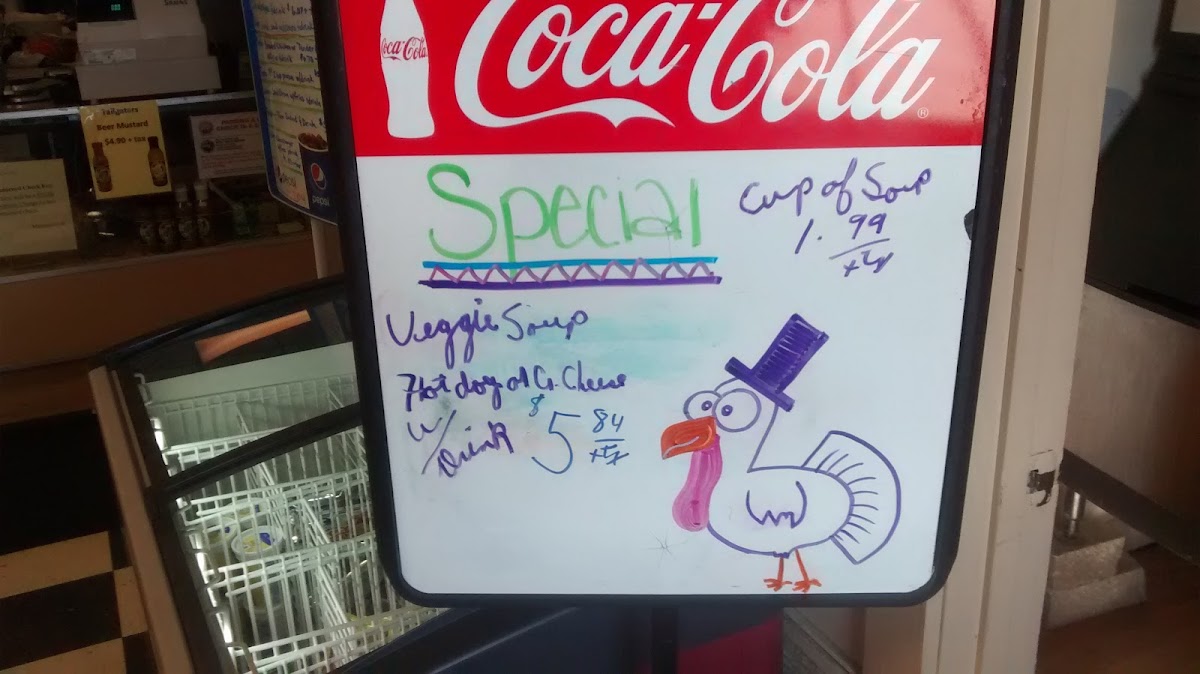 Coca-Cola
Coca-Cola®
Special
Cup of Soup
1.99
+tx
Veggie Soup
Hot dog or G. Cheese
w/
Drink
$5 84
+tx
Tailgators
Beer Mustard
$4.90 + tax
pepsi